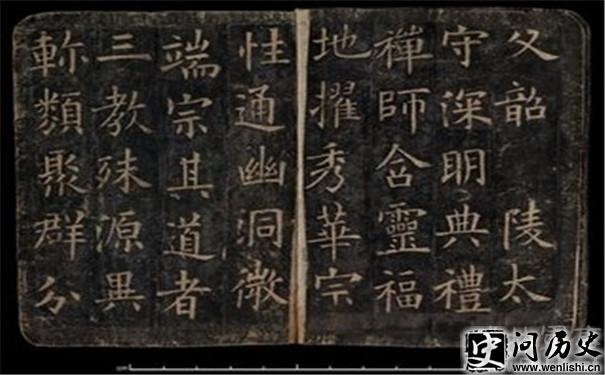 父韶陵太
守深明典禮
禪師含靈福
地擢秀華宗
性通幽洞微
端宗其道者
三教殊源異
軫類聚群分
史问历史
www.wenlishi.cn